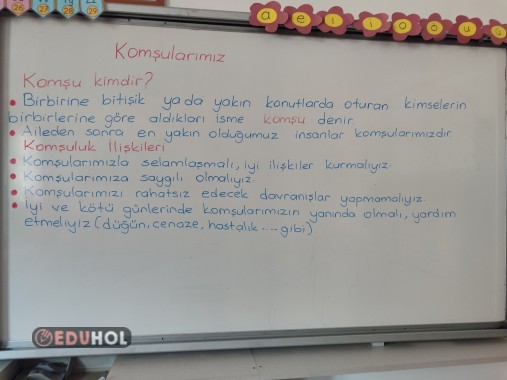 26 27 28 29
a e ı i o ö u
Komşularımız
Komşu kimdir?
• Birbirine bitişik ya da yakın konutlarda oturan kimselerin
birbirlerine göre aldıkları isme komşu denir.
• Aileden sonra en yakın olduğumuz insanlar komşularımızdır.
Komşuluk İlişkileri
• Komşularımızla selamlaşmalı, iyi ilişkiler kurmalıyız.
• Komşularımıza saygılı olmalıyız.
• Komşularımızı rahatsız edecek davranışlar yapmamalıyız.
• İyi ve kötü günlerinde komşularımızın yanında olmalı, yardım
etmeliyiz (düğün, cenaze, hastalık .... gibi)
EDUHOL